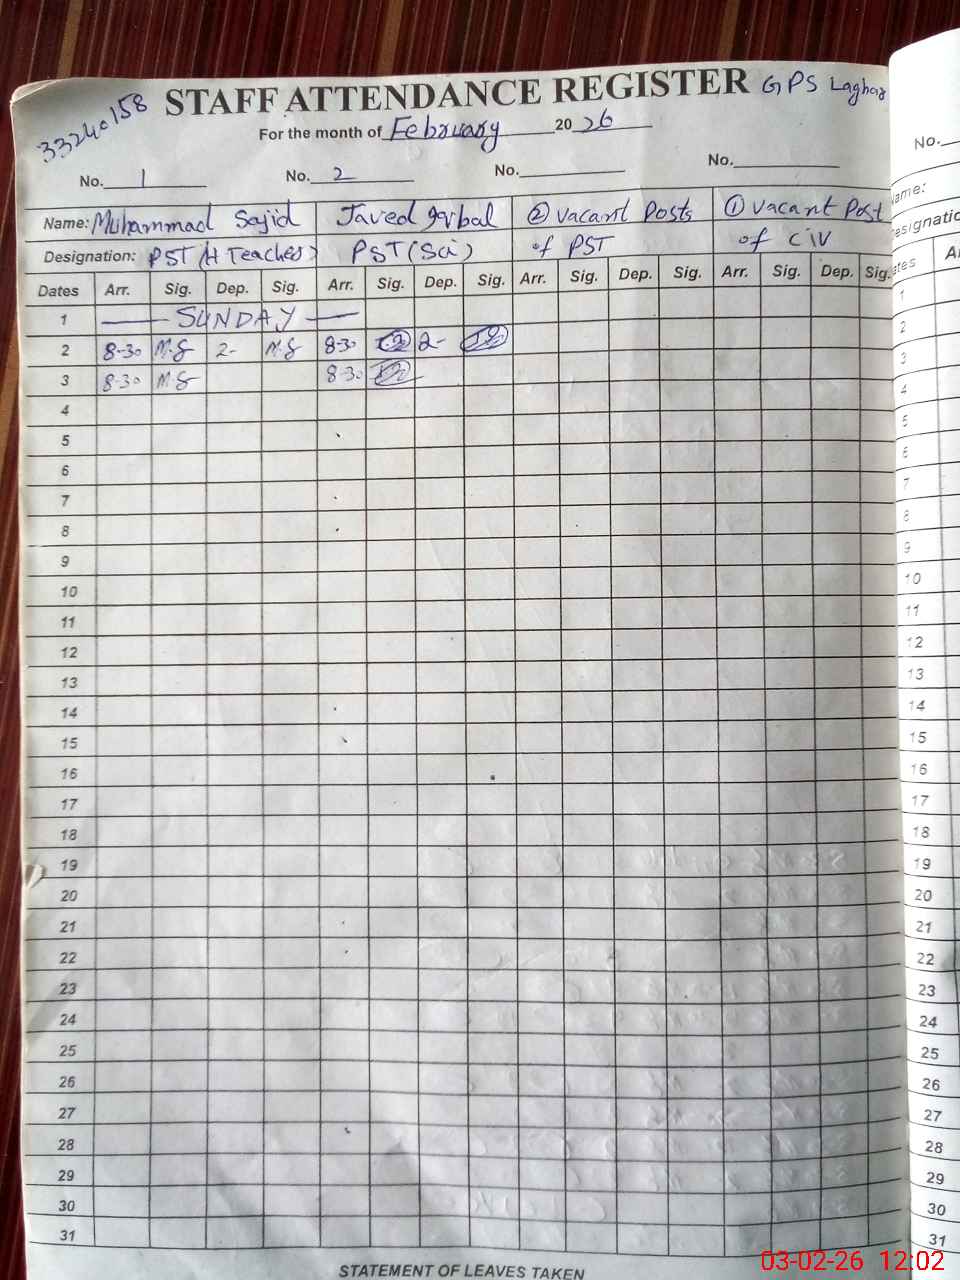 33240158 STAFF ATTENDANCE REGISTER GPS Laghar
For the month of February 2026
No. 1 No. 2 No. No.
Name: Muhammad Sajid Javed Iqbal ② Vacant Posts ① Vacant Post
Designation: PST (H Teacher) PST (Sci) of PST of CIV
Dates Arr. Sig. Dep. Sig. Arr. Sig. Dep. Sig. Arr. Sig. Dep. Sig. Arr. Sig. Dep. Sig.
1 SUNDAY
2 8-30 M.S 2- M.S 8-30 2-
3 8-30 M.S 8-30
4
5
6
7
8
9
10
11
12
13
14
15
16
17
18
19
20
21
22
23
24
25
26
27
28
29
30
31
STATEMENT OF LEAVES TAKEN
No.
1
2
3
4
5
6
7
8
9
10
11
12
13
14
15
16
17
18
19
20
21
22
23
24
25
26
27
28
29
30
31
03-02-26 12:02